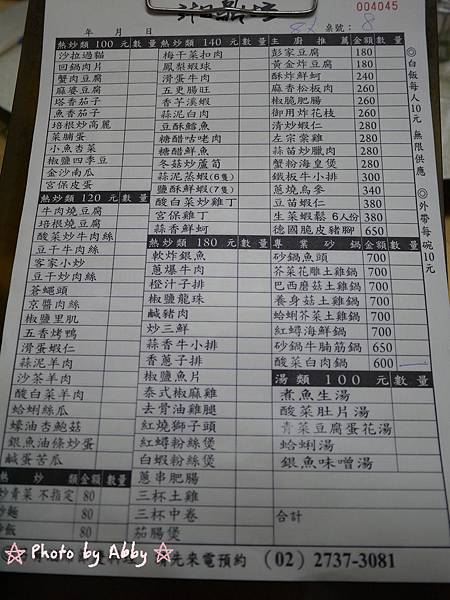 004045
年 月 日 桌號: 8
熱炒類 100 元 數量
沙拉過貓
回鍋肉片
蟹肉豆腐
麻婆豆腐
塔香茄子
魚香茄子
培根炒高麗
菜脯蛋
小魚杏菜
椒鹽四季豆
金沙南瓜
宮保皮蛋
熱炒類 120 元 數量
牛肉燒豆腐
培根燒豆腐
酸菜炒牛肉絲
豆干牛肉絲
客家小炒
豆干炒肉絲
蒼蠅頭
京醬肉絲
椒鹽里肌
五香烤鴨
滑蛋蝦仁
蒜泥羊肉
沙茶羊肉
酸白菜羊肉
蛤蜊絲瓜
蠔油杏鮑菇
銀魚油條炒蛋
鹹蛋苦瓜
熱 炒 類 金額 數量
炒青菜 不指定 80
炒麵 80
炒飯 80
熱炒類 140 元 數量
梅干菜扣肉
鳳梨蝦球
滑蛋牛肉
五更腸旺
香芋溪蝦
蒜泥白肉
豆酥鱈魚
糖醋咕咾肉
糖醋鮮魚
冬菇炒蘆筍
蒜泥蒸蝦(6隻)
鹽酥鮮蝦(7隻)
酸白菜炒雞丁
宮保雞丁
蒜香鮮蚵
熱炒類 180 元 數量
軟炸銀魚
蔥爆牛肉
橙汁子排
椒鹽龍珠
鹹豬肉
炒三鮮
蒜香牛小排
香蔥子排
椒鹽魚片
泰式椒麻雞
去骨油雞腿
紅燒獅子頭
紅蟳粉絲煲
白蝦粉絲煲
蔥串肥腸
三杯土雞
三杯中卷
茄腸煲
主 廚 推 薦 金額 數量
彭家豆腐 180
黃金炸豆腐 180
酥炸鮮蚵 240
麻香松板肉 260
椒脆肥腸 260
御用炸花枝 260
清炒蝦仁 260
左宗棠雞 280
蒜苗炒臘肉 280
蟹粉海皇煲 280
鐵板牛小排 300
蔥燒烏參 340
豆苗蝦仁 380
生菜蝦鬆 6人份 380
德國脆皮豬腳 650
專 業 砂 鍋 金額 數量
砂鍋魚頭 700
芥菜花雕土雞鍋 700
巴西蘑菇土雞鍋 700
養身菇土雞鍋 700
蛤蜊芥菜土雞鍋 700
紅蟳海鮮鍋 700
砂鍋牛腩筋鍋 650
酸菜白肉鍋 600
湯類 100 元 數量
煮魚生湯
酸菜肚片湯
青菜豆腐蛋花湯
蛤蜊湯
銀魚味噌湯
合計
◎白飯每人10元 無限供應 ◎外帶每碗10元
先來電預約 (02) 2737-3081
Photo by Abby